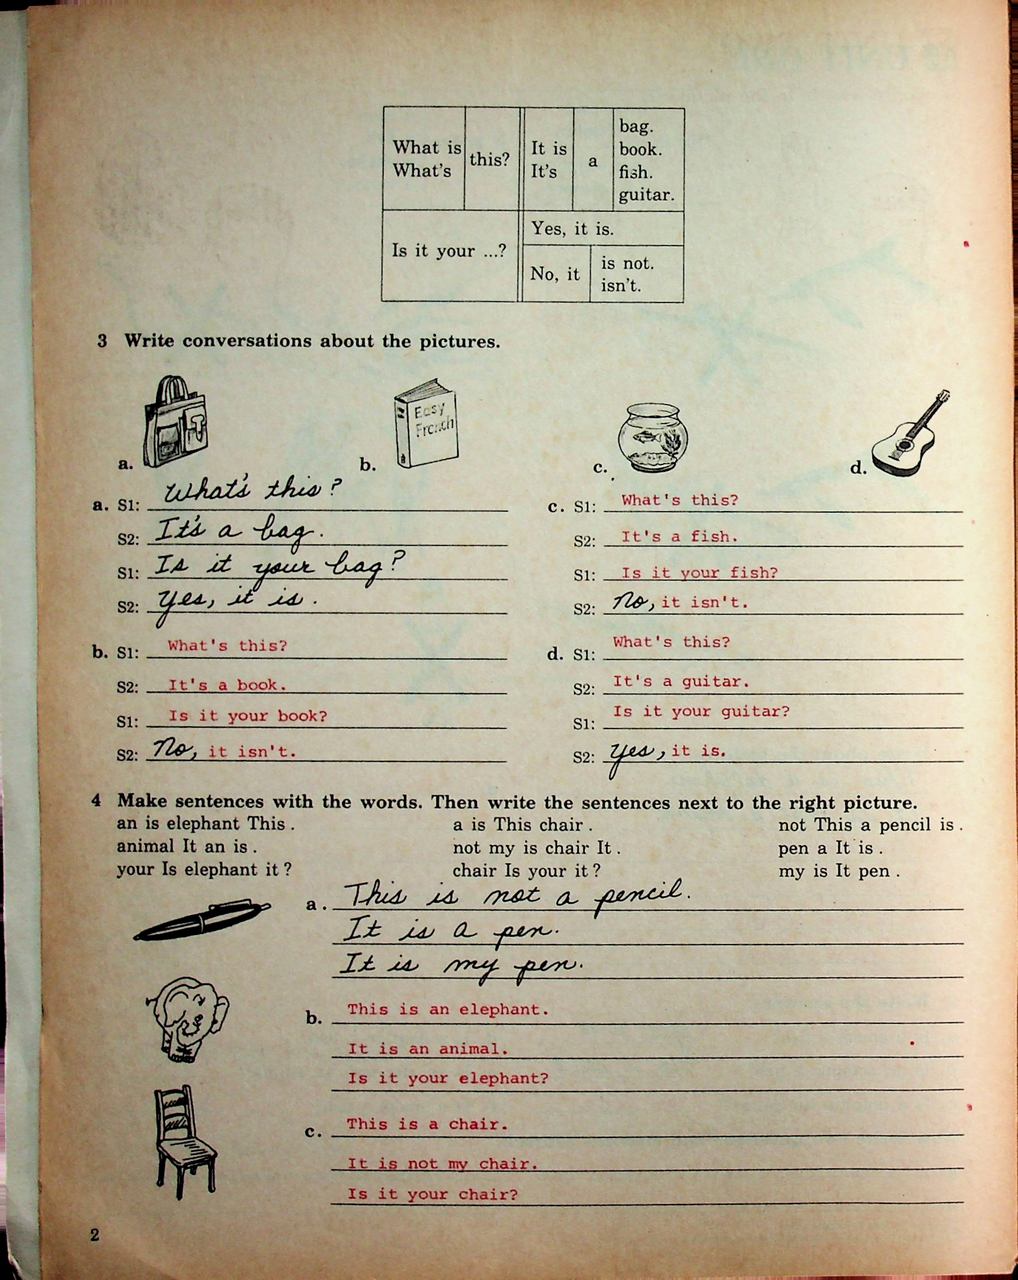 What is this? It is a bag.
What's It's book.
fish.
guitar.
Is it your ...? Yes, it is.
No, it is not.
isn't.
3 Write conversations about the pictures.
Easy
French
a. b. c. d.
a. S1: What's this?
S2: It's a bag.
S1: Is it your bag?
S2: Yes, it is.
b. S1: What's this?
S2: It's a book.
S1: Is it your book?
S2: No, it isn't.
c. S1: What's this?
S2: It's a fish.
S1: Is it your fish?
S2: No, it isn't.
d. S1: What's this?
S2: It's a guitar.
S1: Is it your guitar?
S2: Yes, it is.
4 Make sentences with the words. Then write the sentences next to the right picture.
an is elephant This . a is This chair . not This a pencil is .
animal It an is . not my is chair It . pen a It is .
your Is elephant it ? chair Is your it ? my is It pen .
a. This is not a pencil.
It is a pen.
It is my pen.
b. This is an elephant.
It is an animal.
Is it your elephant?
c. This is a chair.
It is not my chair.
Is it your chair?
2